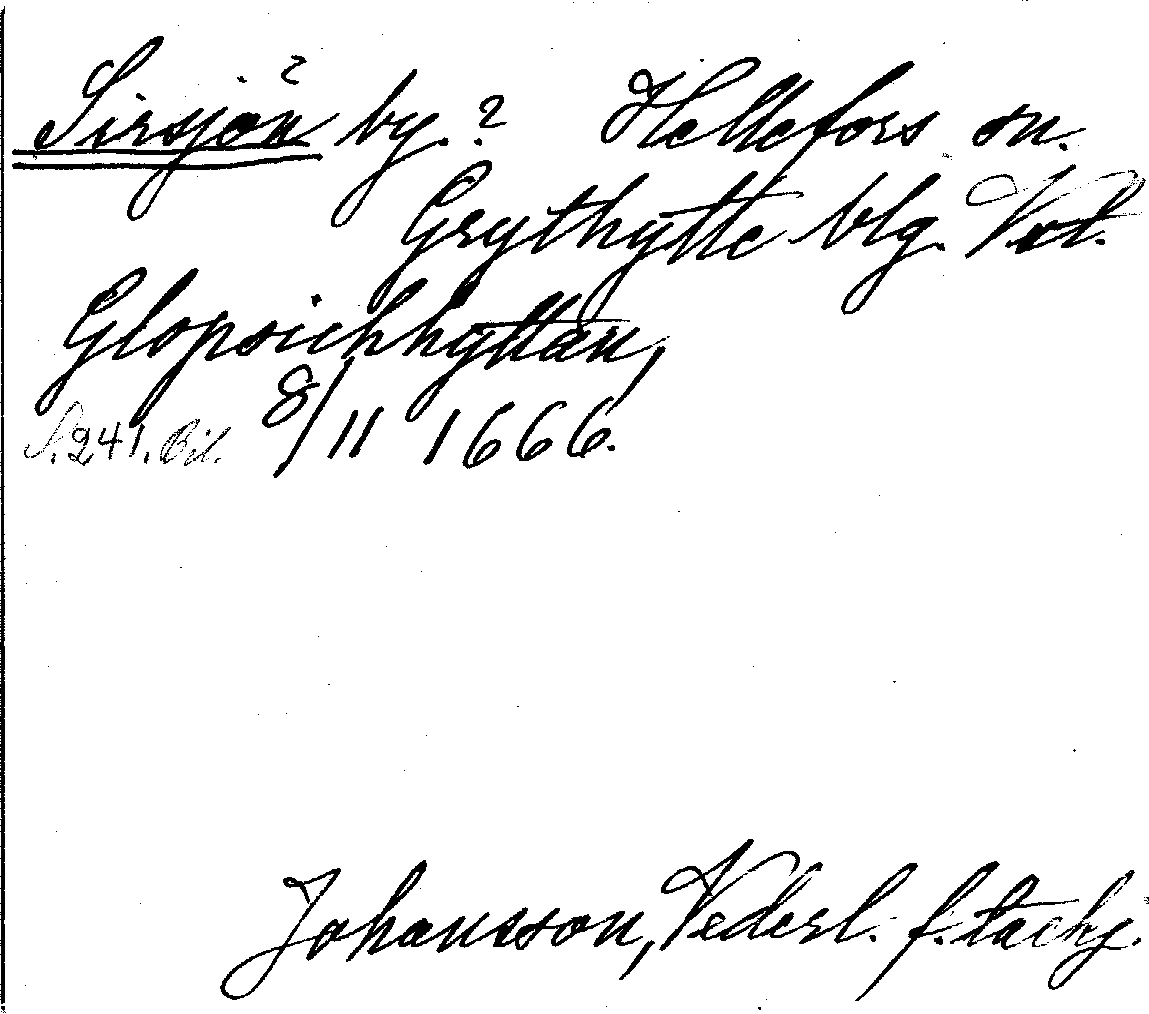 Sirsjön ? by.? Hellefors sn.
Grythytte blg. Vst.
Glopsichhyttan,
S. 241. Bil. 8/11 1666.
Johansson, Vederl. f. tachj.